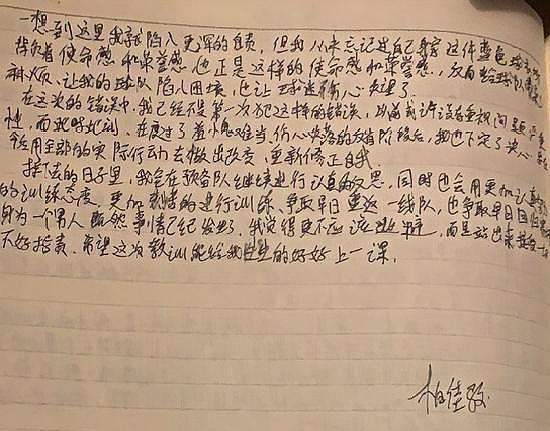 一想到这里我就陷入更深的自责，但我从未忘记过自己身穿这件蓝色球衣所
背负着使命感和荣誉感，也正是这样的使命感和荣誉感，反而给球队带来
麻烦，让我的球队陷入困境，也让球迷伤心失望了。
在这次的错误中，我已经不是第一次犯这样的错误，以前或许没有重视问题严重
性，而我呼，在度过了羞愧难当，伤心失落的反省阶段后，我也下定了决心
能用全部的实际行动去做出改变，重新修正自我。
接下去的日子里，我会在预备队继续进行认真的反思，同时也会用更加认真
的训练态度，更加积极的进行训练，争取早日重返一线队，也争取早日回归
身为一个男人既然事情已经发生了，我觉得更不应该逃避，而是站出来接受
不好指责，希望这次教训能给我的好好上一课。
柏佳骏